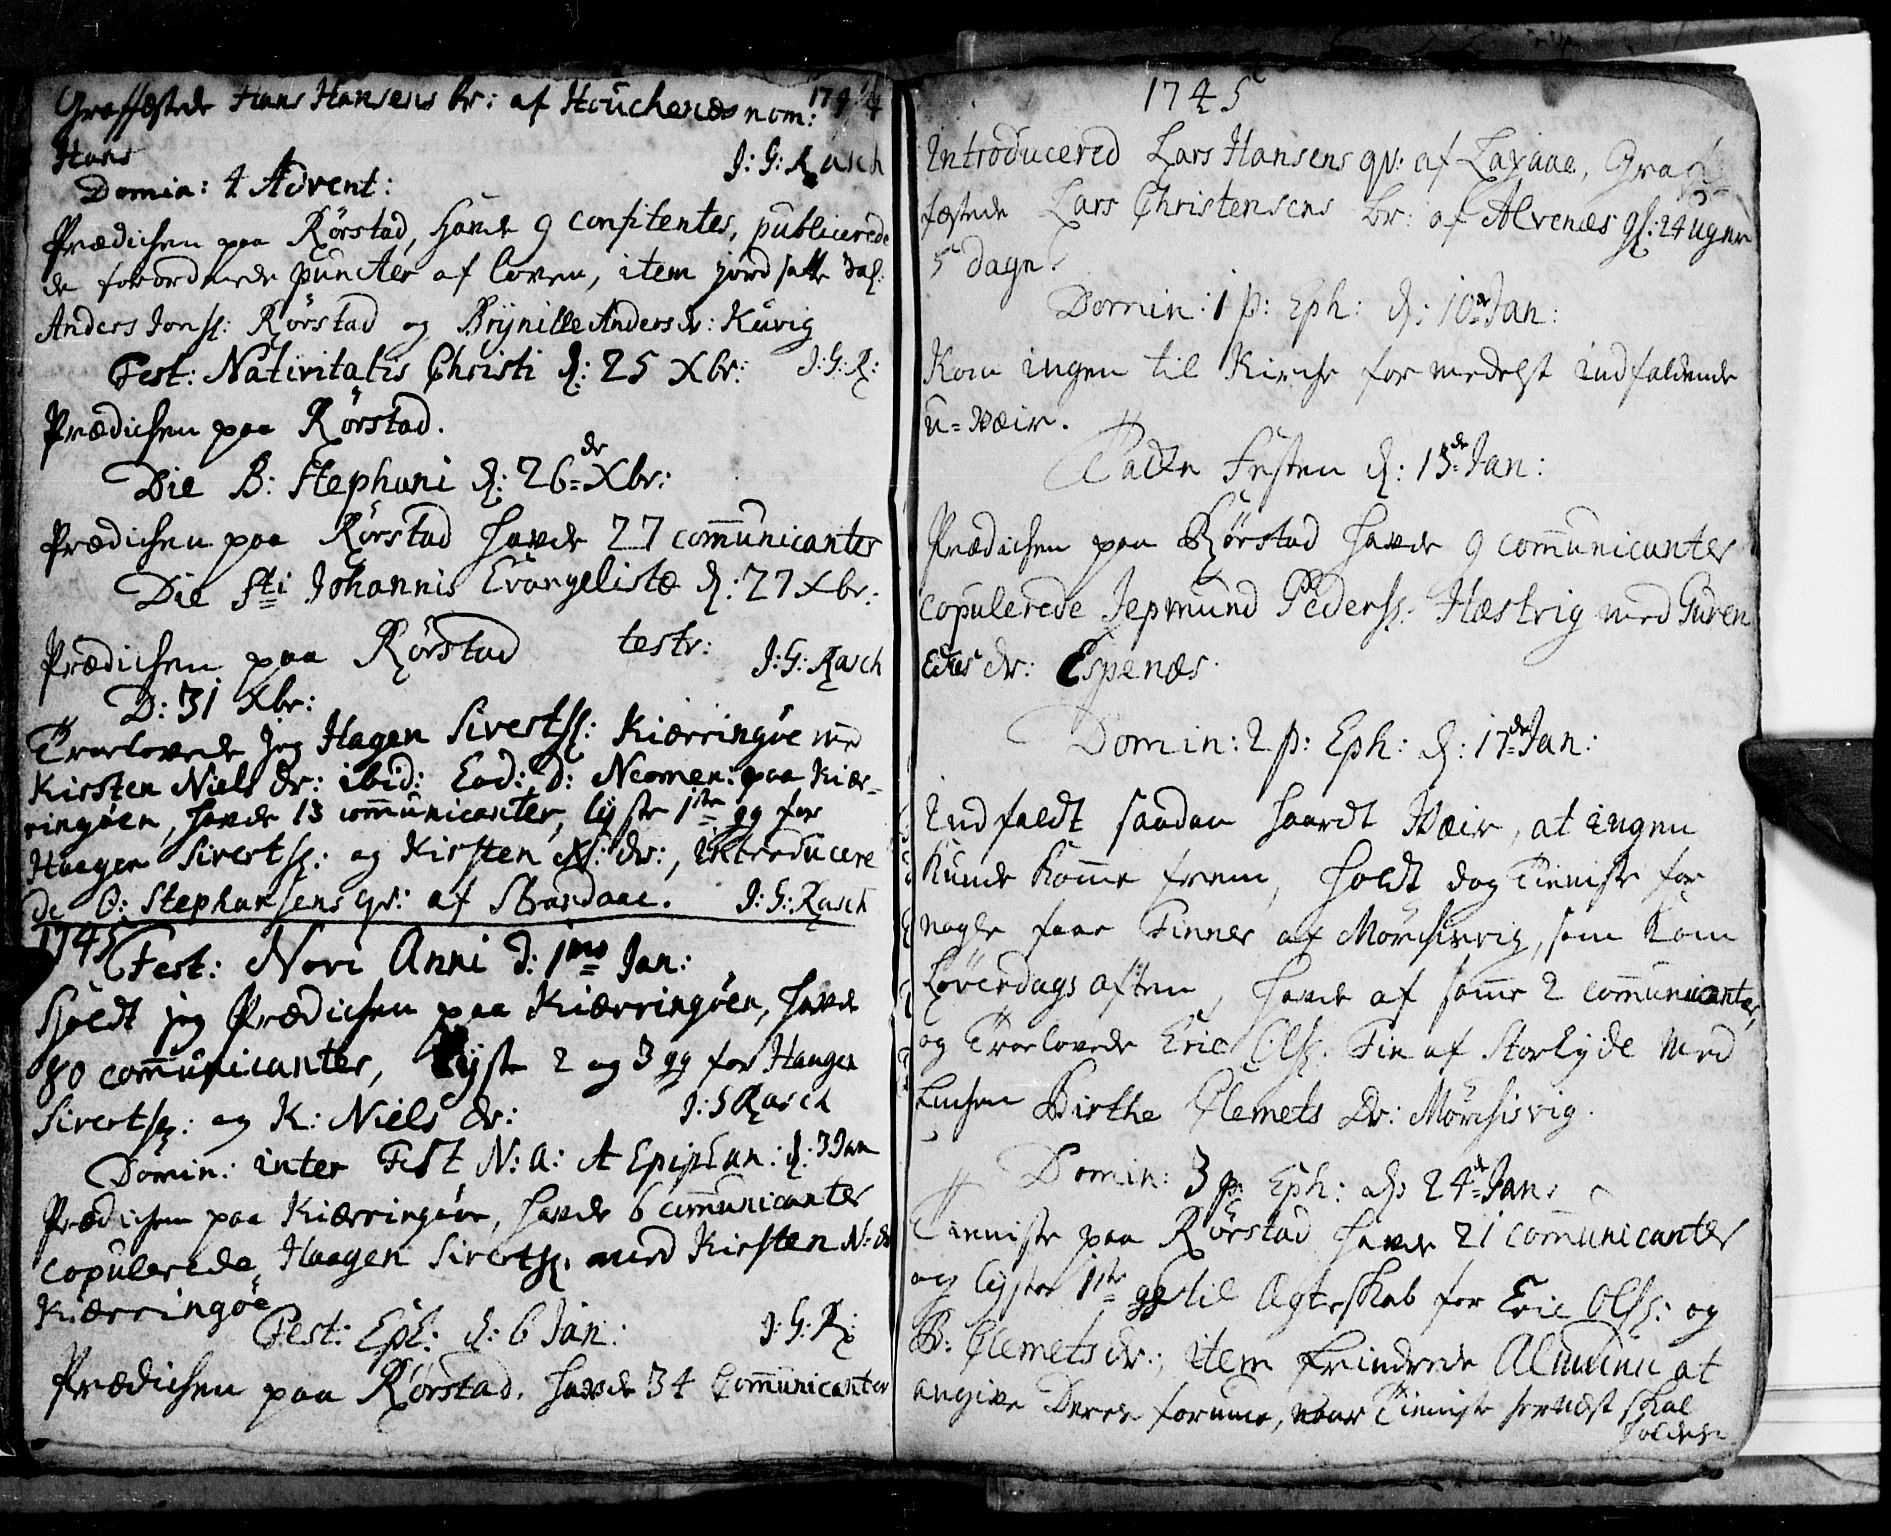 1744
Graffæstede Hans Hansens br: af Houchenæs nom:
Hans
J: G: Rasch
Domin: 4 Advent:
Prædichen paa Rörstad, havde 9 confitentes, publicerede
de forordnede puncter af loven, item jord satte
Anders Jonss: Rörstad og Brÿnille Anders dr: Kuvig
Fest: Nativitatis Christi d: 25 Xbr: J: G: R:
Prædichen paa Rörstad.
Die B: Stephani d: 26 de Xbr:
Prædichen paa Rörstad havde 27 com̄unicanter
Die Sti Johannis Evangelistæ d: 27 Xbr:
Prædichen paa Rörstad testr: J: G: Rasch
D: 31 Xbr:
Troelovede jeg Hagen Sivertss: Kiærringöe med
Kirsten Niels dr: ibid: Eod: d: Neomen: paa Kiær-
ringöen, havde 13 com̄unicanter, lÿste 1ste gg for
Haagen Sivertss: og Kirsten N: dr:, introducere
de O: Stephansens qv: af Strandaae. J: G: Rasch
1745
Fest: Novi Anni d: 1mo Jan:
Holdt jeg Prædichen paa Kiærringöen, havde
80 com̄unicanter, Lÿste 2 og 3 gg for Haagen
Sivertss: og K: Niels dr: J: G Rasch
Domin: inter Fest N: A: et Epiphan: d: 3 Jan
Prædichen paa Kiærringöen, havde 6 com̄unicanter
copulerede Haagen Sivertss: med Kirsten N: dr
Kiærringöe
Fest: Eph: d: 6 Jan: J: G: R:
Prædichen paa Rörstad, havde 34 Com̄unicanter
1745
Introducered Lars Hansens qv: af Laxaae, Graf
fæstede Lars Christensens br: af Alvenæs gl: 24 Uger
5 dage.
Domin: 1 p: Eph: d: 10de Jan:
Kom ingen til Kirche formedelst indfaldende
u-Væir.
Tacke Festen d: 13de Jan:
Prædichen paa Rörstad havde 9 com̄unicanter
copulerede Jepmund Pederss: Hæstvig med Guren
dr: Espenæs.
Domin: 2 p: Eph: d: 17de Jan:
Indfaldt saadan haardt Væir, at ingen
Kunde kom̄e frem, holdt dog Tieniste for
nogle faae Finner af Mörchsvig, som kom
Löverdags aften, havde af som̄e 2 com̄unicanter,
og Troelovede Eric Olss: Fin af Storlÿde med
Enchen Birthe Clemets Dr: Mörchisvig.
Domin: 3 p: Eph: d: 24de Jan:
Tieniste paa Rörstad havde 21 com̄unicanter
og lÿste 1ste gg til Ægteskab for Eric Olss: og
B: Clemets dr:, item Erindrede Almuen at
angive Deres formue, naar Tieniste hernæst skal
holdes.